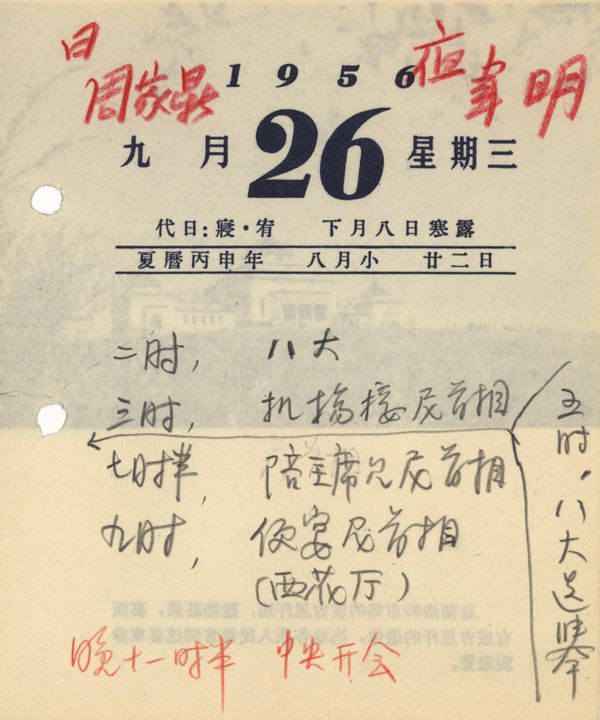 日 周家鼎 夜 韦明
1956
九月 26 星期三
代日:寢·宥 下月八日寒露
夏曆丙申年 八月小 廿二日
二时， 八大
三时， 机场接尼首相
五时，八大选举
七时半， 陪主席见尼首相
九时， 便宴尼首相
(西花厅)
晚十一时半 中央开会